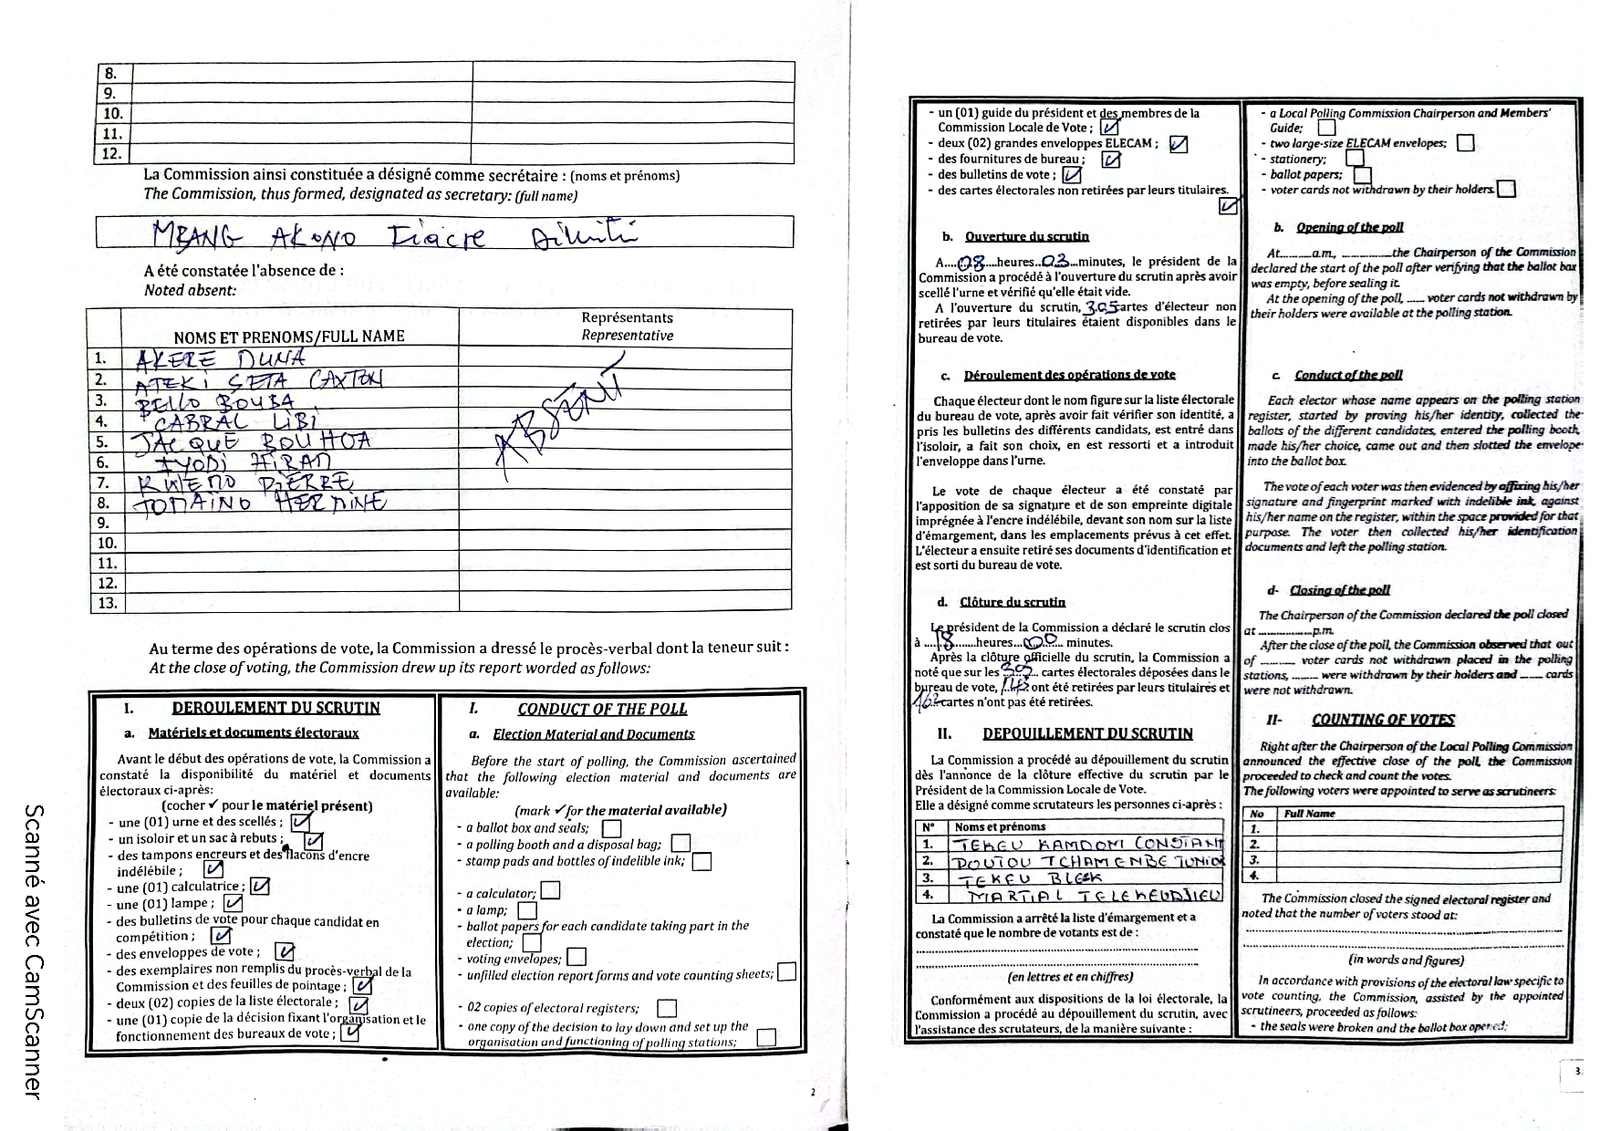 8.
9.
10.
11.
12.
La Commission ainsi constituée a désigné comme secrétaire : (noms et prénoms)
The Commission, thus formed, designated as secretary: (full name)
MBANG AKONO Fiacre
A été constatée l'absence de :
Noted absent:
NOMS ET PRENOMS/FULL NAME
Représentants
Representative
1. AKERE MUNA
2. ATEKI SETA CAXTON
3. BELLO BOUBA
4. CABRAL LIBI
5. JACQUE BOUHOA
6. IYODI HIRAM
7. KWEMO PIERRE
8. TOMAINO HERMINE
ABSENT
9.
10.
11.
12.
13.
Au terme des opérations de vote, la Commission a dressé le procès-verbal dont la teneur suit :
At the close of voting, the Commission drew up its report worded as follows:
I. DEROULEMENT DU SCRUTIN
a. Matériels et documents électoraux
Avant le début des opérations de vote, la Commission a
constaté la disponibilité du matériel et documents
électoraux ci-après:
(cocher ✓ pour le matériel présent)
- une (01) urne et des scellés ; ☑
- un isoloir et un sac à rebuts ; ☑
- des tampons encreurs et des flacons d'encre
indélébile ; ☑
- une (01) calculatrice ; ☑
- une (01) lampe ; ☑
- des bulletins de vote pour chaque candidat en
compétition ; ☑
- des enveloppes de vote ; ☑
- des exemplaires non remplis du procès-verbal de la
Commission et des feuilles de pointage ; ☑
- deux (02) copies de la liste électorale ; ☑
- une (01) copie de la décision fixant l'organisation et le
fonctionnement des bureaux de vote ; ☑
I. CONDUCT OF THE POLL
a. Election Material and Documents
Before the start of polling, the Commission ascertained
that the following election material and documents are
available:
(mark ✓ for the material available)
- a ballot box and seals; ☐
- a polling booth and a disposal bag; ☐
- stamp pads and bottles of indelible ink; ☐
- a calculator; ☐
- a lamp; ☐
- ballot papers for each candidate taking part in the
election; ☐
- voting envelopes; ☐
- unfilled election report forms and vote counting sheets; ☐
- 02 copies of electoral registers; ☐
- one copy of the decision to lay down and set up the
organisation and functioning of polling stations; ☐
2
Scanné avec CamScanner
- un (01) guide du président et des membres de la
Commission Locale de Vote ; ☑
- deux (02) grandes enveloppes ELECAM ; ☑
- des fournitures de bureau ; ☑
- des bulletins de vote ; ☑
- des cartes électorales non retirées par leurs titulaires.
☑
b. Ouverture du scrutin
A....08...heures..03...minutes, le président de la
Commission a procédé à l'ouverture du scrutin après avoir
scellé l'urne et vérifié qu'elle était vide.
A l'ouverture du scrutin, 305 cartes d'électeur non
retirées par leurs titulaires étaient disponibles dans le
bureau de vote.
c. Déroulement des opérations de vote
Chaque électeur dont le nom figure sur la liste électorale
du bureau de vote, après avoir fait vérifier son identité, a
pris les bulletins des différents candidats, est entré dans
l'isoloir, a fait son choix, en est ressorti et a introduit
l'enveloppe dans l'urne.
Le vote de chaque électeur a été constaté par
l'apposition de sa signature et de son empreinte digitale
imprégnée à l'encre indélébile, devant son nom sur la liste
d'émargement, dans les emplacements prévus à cet effet.
L'électeur a ensuite retiré ses documents d'identification et
est sorti du bureau de vote.
d. Clôture du scrutin
Le président de la Commission a déclaré le scrutin clos
à ....18....heures...00... minutes.
Après la clôture officielle du scrutin, la Commission a
noté que sur les 305 cartes électorales déposées dans le
bureau de vote, ont été retirées par leurs titulaires et
cartes n'ont pas été retirées.
II. DEPOUILLEMENT DU SCRUTIN
La Commission a procédé au dépouillement du scrutin
dès l'annonce de la clôture effective du scrutin par le
Président de la Commission Locale de Vote.
Elle a désigné comme scrutateurs les personnes ci-après :
N° Noms et prénoms
1. TEKEU KAMDOM CONSTANT
2. POUTOU TCHAMENBE JUNIOR
3. TEKEU BLESK
4. MARTIAL TELEKEUDJIEU
La Commission a arrêté la liste d'émargement et a
constaté que le nombre de votants est de :
(en lettres et en chiffres)
Conformément aux dispositions de la loi électorale, la
Commission a procédé au dépouillement du scrutin, avec
l'assistance des scrutateurs, de la manière suivante :
- a Local Polling Commission Chairperson and Members'
Guide; ☐
- two large-size ELECAM envelopes; ☐
- stationery; ☐
- ballot papers; ☐
- voter cards not withdrawn by their holders. ☐
b. Opening of the poll
At..........a.m., ..............the Chairperson of the Commission
declared the start of the poll after verifying that the ballot box
was empty, before sealing it.
At the opening of the poll, ...... voter cards not withdrawn by
their holders were available at the polling station.
c. Conduct of the poll
Each elector whose name appears on the polling station
register, started by proving his/her identity, collected the
ballots of the different candidates, entered the polling booth,
made his/her choice, came out and then slotted the envelope
into the ballot box.
The vote of each voter was then evidenced by affixing his/her
signature and fingerprint marked with indelible ink, against
his/her name on the register, within the space provided for that
purpose. The voter then collected his/her identification
documents and left the polling station.
d- Closing of the poll
The Chairperson of the Commission declared the poll closed
at ..................p.m.
After the close of the poll, the Commission observed that out
of ........... voter cards not withdrawn placed in the polling
stations, ........ were withdrawn by their holders and ....... cards
were not withdrawn.
II- COUNTING OF VOTES
Right after the Chairperson of the Local Polling Commission
announced the effective close of the poll, the Commission
proceeded to check and count the votes.
The following voters were appointed to serve as scrutineers:
No Full Name
1.
2.
3.
4.
The Commission closed the signed electoral register and
noted that the number of voters stood at:
(in words and figures)
In accordance with provisions of the electoral law specific to
vote counting, the Commission, assisted by the appointed
scrutineers, proceeded as follows:
- the seals were broken and the ballot box opened;
3